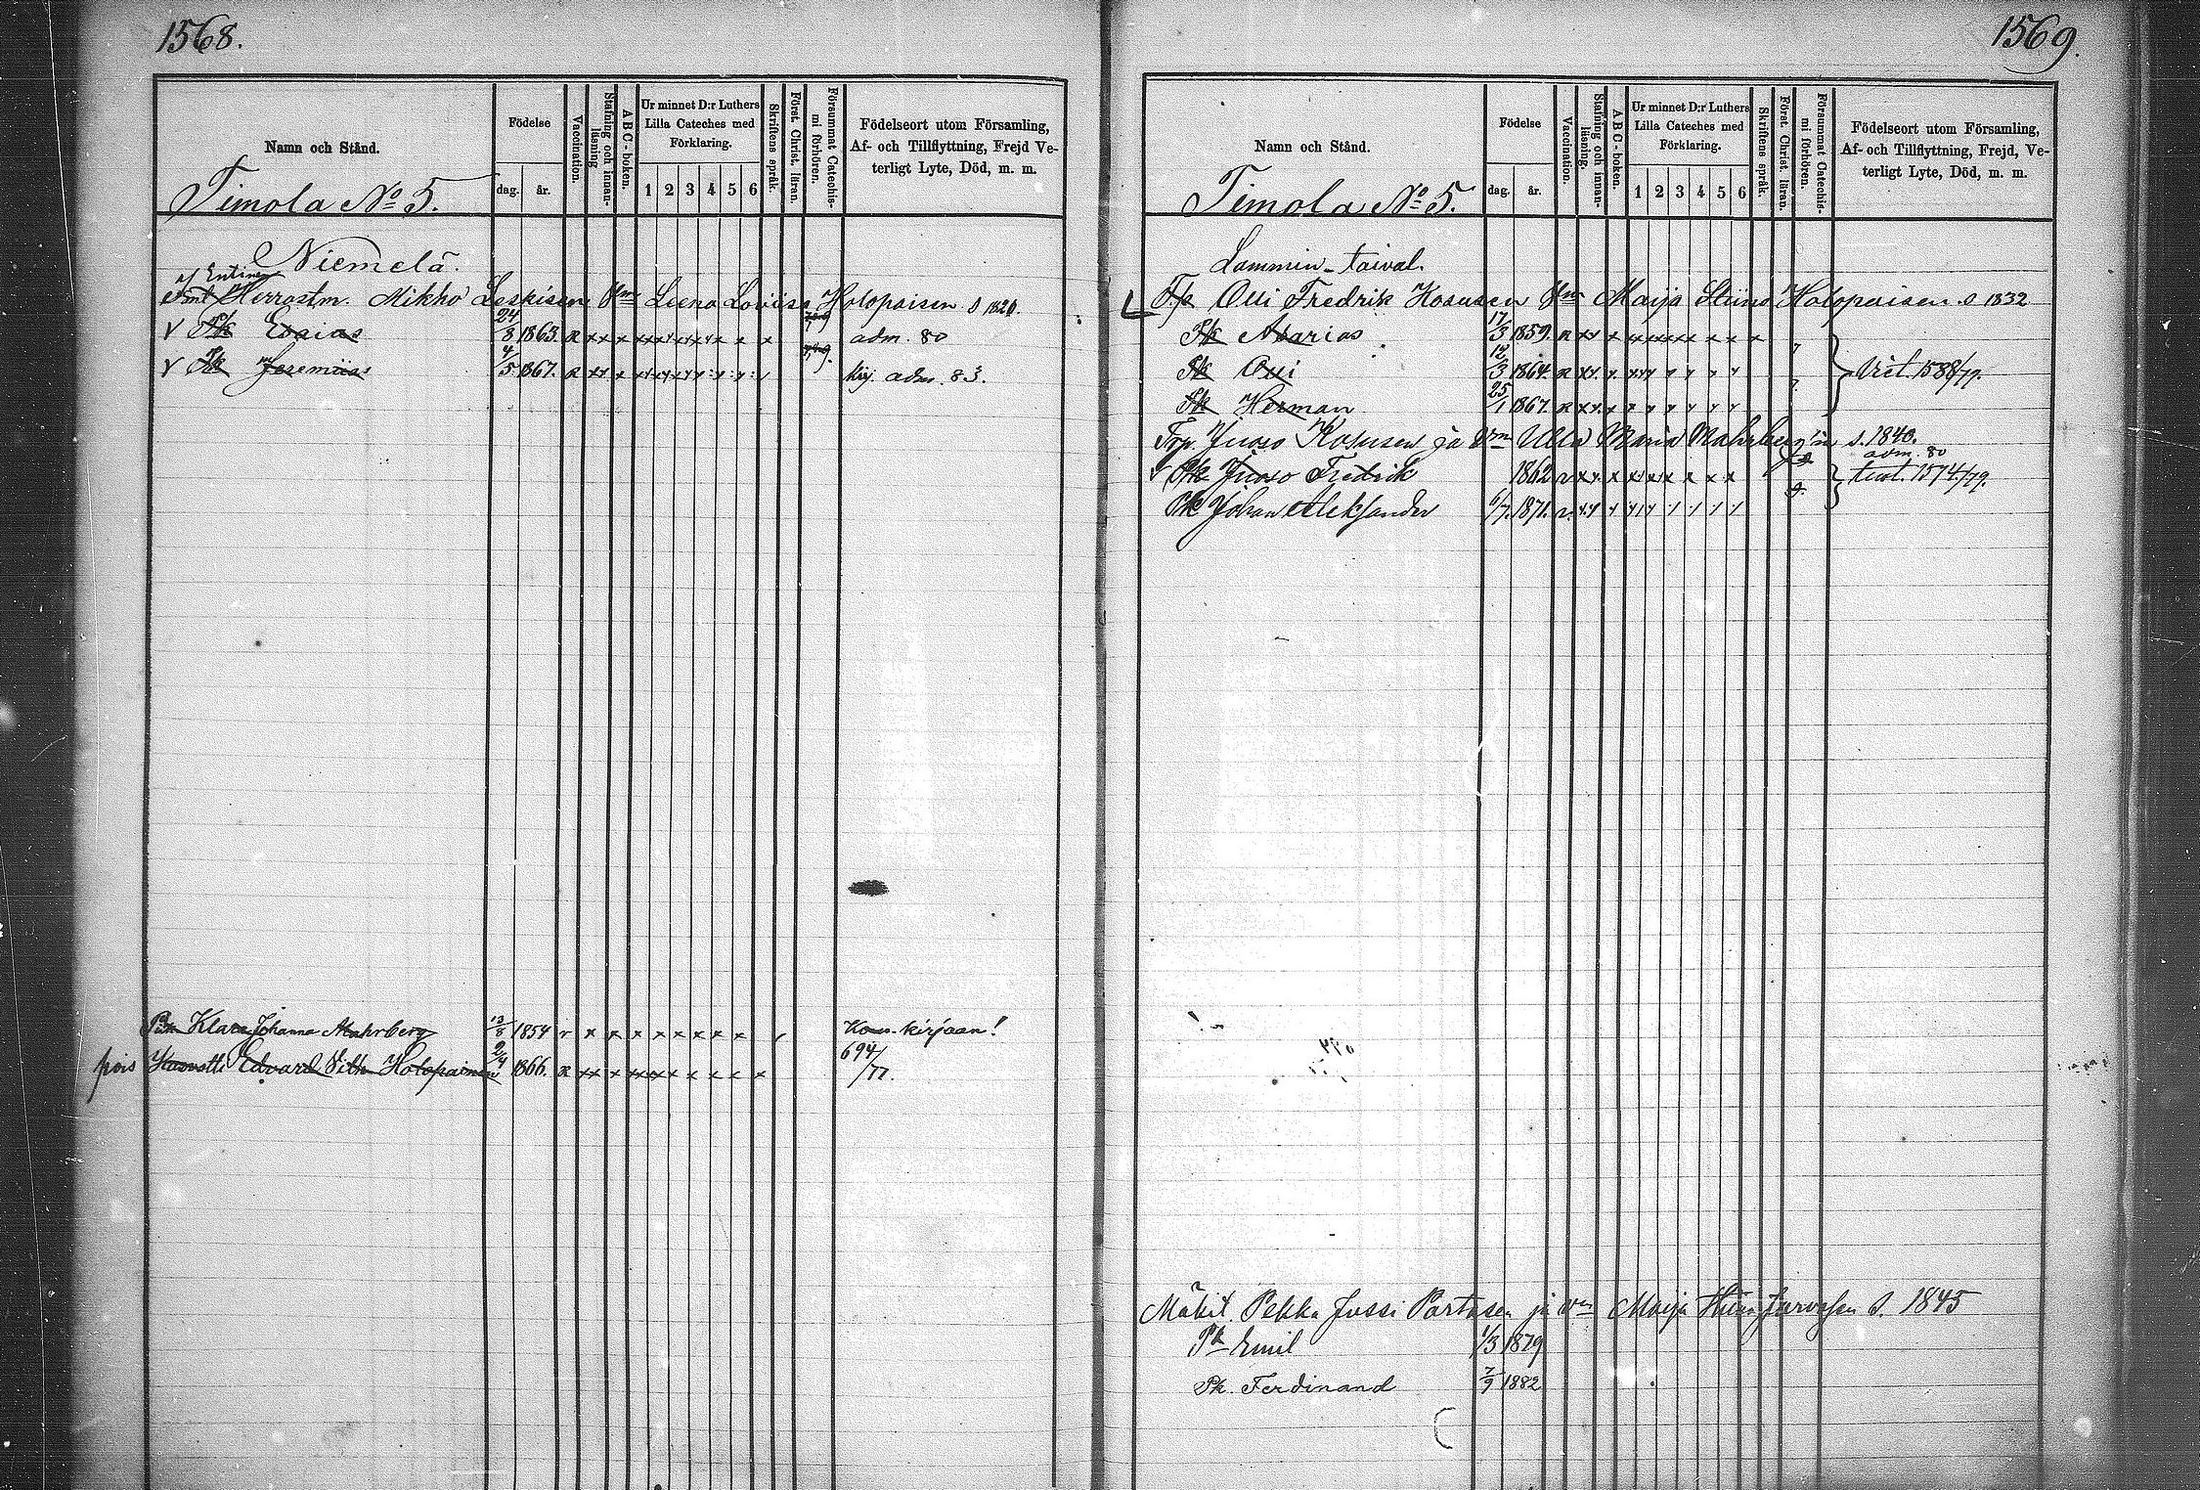 1568.
Namn och Stånd.
Födelse
dag.
år.
Vaccination.
Stafning och innan-
läsning
ABC-boken.
Ur minnet D:r Luthers
Lilla Cateches med
Förklaring.
1 2 3 4 5 6
Skriftens språk.
Först. Christ. läran.
Försummat Catechis-
mi förhören.
Födelseort utom Församling,
Af- och Tillflyttning, Frejd Ve-
terligt Lyte, Död, m. m.
Timola No 5.
Niemelä.
Entinen
Herrastm. Mikko Leskisen Leena Loviisa Holopaisen s 1820.
v Pk Esaias 24/8 1863. adm. 80
v Pk Jeremias 4/5 1867. kirj. adm. 83.
Klara Johanna Mahrberg 13/8 1854 kirjaan!
pois Edvard Holopainen 2/4 1866. 694/77.
1569.
Namn och Stånd.
Födelse
dag.
år.
Vaccination.
Stafning och innan-
läsning.
ABC-boken.
Ur minnet D:r Luthers
Lilla Cateches med
Förklaring.
1 2 3 4 5 6
Skriftens språk.
Först. Christ. läran.
Försummat Catechis-
mi förhören.
Födelseort utom Församling,
Af- och Tillflyttning, Frejd, Ve-
terligt Lyte, Död, m. m.
Timola No 5.
Lammin-taival.
Olli Fredrik Kosusen Maija Stiina Holopaisen. s 1832
Pk Asarias 17/3 1859.
Pk Olli 12/3 1864. 1588/79.
Pk Herman 25/1 1867.
Juoso Kosusen ja Ulla Maria Mahrberg'in s. 1840.
adm. 80
v Pk Juoso Fredrik 1862 1574/79.
Pk Johan Aleksander 6/7. 1871.
Mäkit. Pekka Jussi Partasen ja vm Maija s. 1845
Pk Emil 1/3 1879
Pk. Ferdinand 7/9 1882